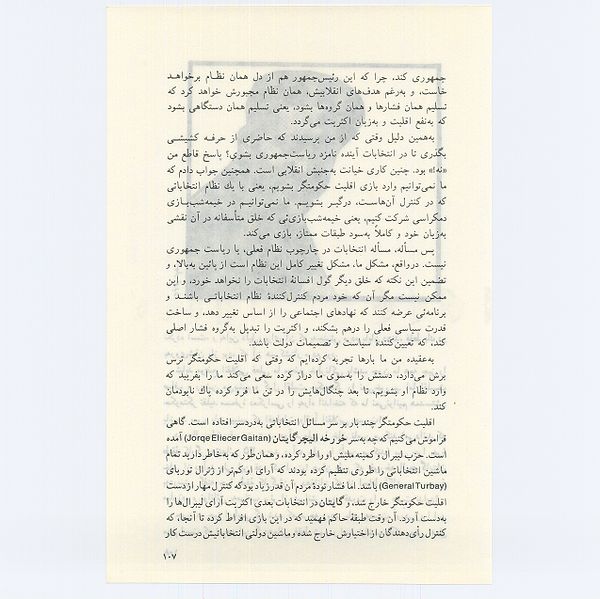 جمهوری کند، چرا که این رئیس‌جمهور هم از دل همان نظام برخواهد
خاست، و به‌رغم هدف‌های انقلابیش، همان نظام مجبورش خواهد کرد که
تسلیم همان فشارها و همان گروه‌ها بشود، یعنی تسلیم همان دستگاهی بشود
که به‌نفع اقلیت و به‌زیان اکثریت می‌گردد.
به‌همین دلیل وقتی که از من پرسیدند که حاضری از حرفـه کشیشی
بگذری تا در انتخابات آینده نامزد ریاست‌جمهوری بشوی؟ پاسخ قاطع من
«نه!» بود. چنین کاری خیانت به‌جنبش انقلابی است. همچنین جواب دادم که
ما نمی‌توانیم وارد بازی اقلیت حکومتگر بشویم، یعنی با یك نظام انتخاباتی
که در کنترل آن‌هاست، درگیر بشویم. ما نمی‌توانیم در خیمه‌شب‌بازی
دمکراسی شرکت کنیم، یعنی خیمه‌شب‌بازی‌ئی که خلق متأسفانه در آن نقشی
به‌زیان خود و کاملاً به‌سود طبقات ممتاز، بازی می‌کند.
پس مسأله، مسأله انتخابات در چارچوب نظام فعلی، یا ریاست جمهوری
نیست. درواقع، مشکل ما، مشکل تغییر کامل این نظام است از پائین به‌بالا، و
تضمین این نکته که خلق دیگر گول افسانهٔ انتخابات را نخواهد خورد، و این
ممکن نیست مگر آن که خود مردم کنترل‌کنندهٔ نظام انتخاباتـی باشنـد و
برنامه‌ئی عرضه کنند که نهادهای اجتماعی را از اساس تغییر دهد، و ساخت
قدرت سیاسی فعلی را درهم بشکند، و اکثریت را تبدیل به‌گروه فشار اصلی
کند، که تعیین‌کنندهٔ سیاست و تصمیمات دولت باشد.
به‌عقیده من ما بارها تجربه کرده‌ایم که وقتی که اقلیت حکومتگر ترس
برش می‌دارد، دستش را به‌سوی ما دراز کرده سعی می‌کند ما را بفریبد که
وارد نظام او بشویم، تا بعد چنگال‌هایش را در تن ما فرو کرده پاك نابودمان
کند.
اقلیت حکومتگر چند بار بر سر مسائل انتخاباتی به‌دردسر افتاده است. گاهی
فراموش می‌کنیم که چه به‌سر خورخه الیچر گایتان (Jorqe Eliecer Gaitan) آمده
است. حزب لیبرال و کمیته ملیش او را طرد کرده، و همان‌طور که به‌خاطر دارید تمام
ماشین انتخاباتی را طوری تنظیم کرده بودند که آرای او کم‌تر از ژنرال توربای
(General Turbay) باشد. اما فشار تودهٔ مردم آن قدر زیاد بود که کنترل مهار از دست
اقلیت حکومتگر خارج شد، و گایتان در انتخابات بعدی اکثریت آرای لیبرال‌ها را
به‌دست آورد. آن وقت طبقهٔ حاکم فهمید که در این بازی افراط کرده تا آنجا، که
کنترل رأی‌دهندگان از اختیارش خارج شده و ماشین دولتی انتخاباتیش درست کار
۱۰۷